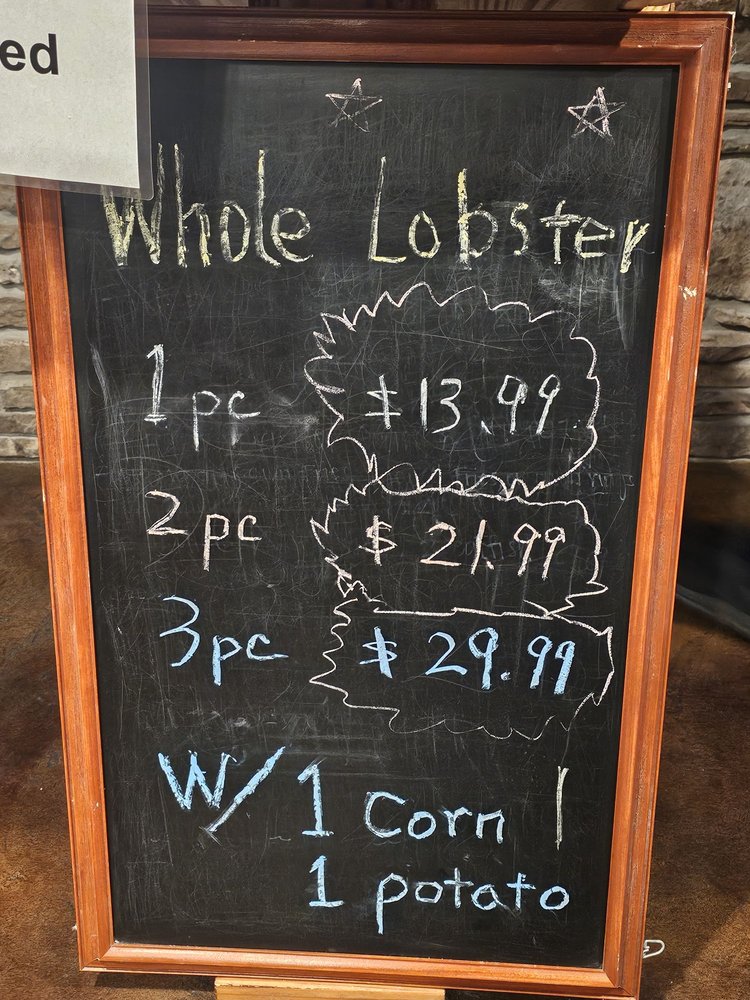 ed
Whole Lobster
1 pc $13.99
2 pc $21.99
3 pc $29.99
W/ 1 corn
1 potato